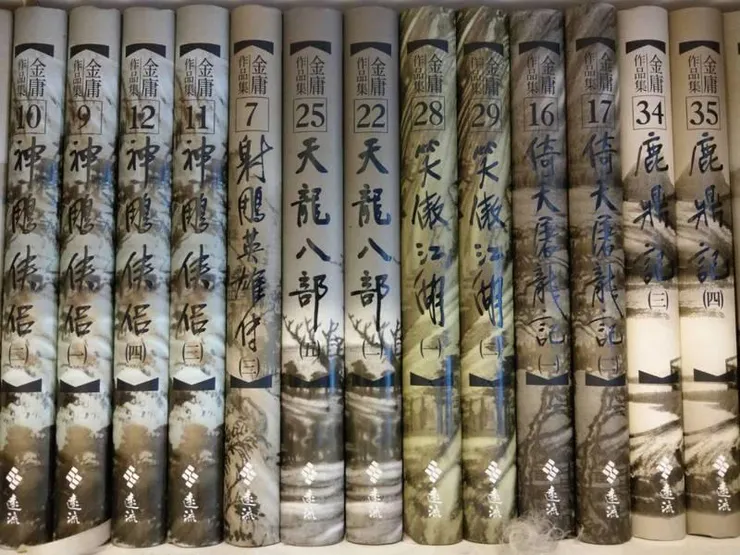 金庸
作品集
10
神鵰俠侶
(二)
遠流
金庸
作品集
9
神鵰俠侶
(一)
遠流
金庸
作品集
12
神鵰俠侶
(四)
遠流
金庸
作品集
11
神鵰俠侶
(三)
遠流
金庸
作品集
7
射鵰英雄傳
(三)
遠流
金庸
作品集
25
天龍八部
(五)
遠流
金庸
作品集
22
天龍八部
(二)
遠流
金庸
作品集
28
笑傲江湖
(一)
遠流
金庸
作品集
29
笑傲江湖
(二)
遠流
金庸
作品集
16
倚天屠龍記
(一)
遠流
金庸
作品集
17
倚天屠龍記
(二)
遠流
金庸
作品集
34
鹿鼎記
(三)
遠流
金庸
作品集
35
鹿鼎記
(四)
遠流